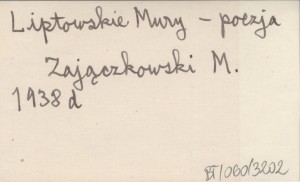 Liptowskie Mury - poezja
Zajączkowski M.
1938 d
/060/3202